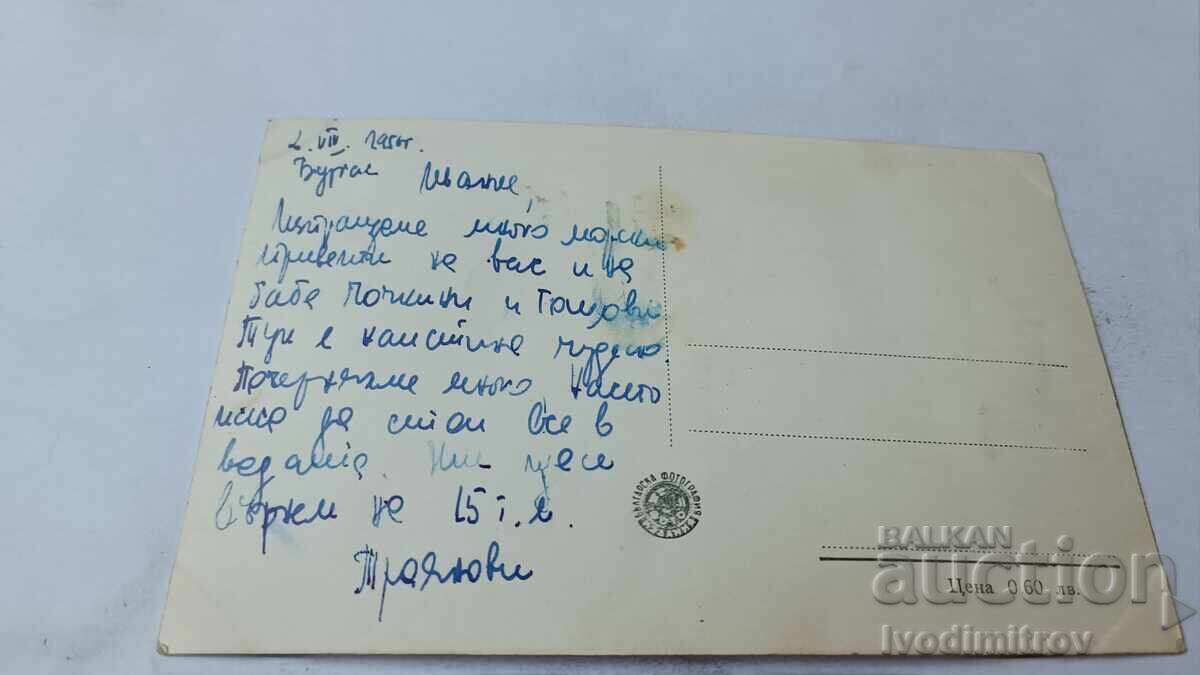 2. VIII. 195 г.
Бургас Иванке,
Изпращаме много морски
привети на вас и на
баба Почкини и
Тук е наистина чудесно
Почерняхме много, Наито
иска да стои все в
водата. Ние ще се
върнем на 15 т. м.
Траянови
БЪЛГАРСКА ФОТОГРАФИЯ
Цена 0.60 лв.
BALKAN
auction
Ivodimitrov